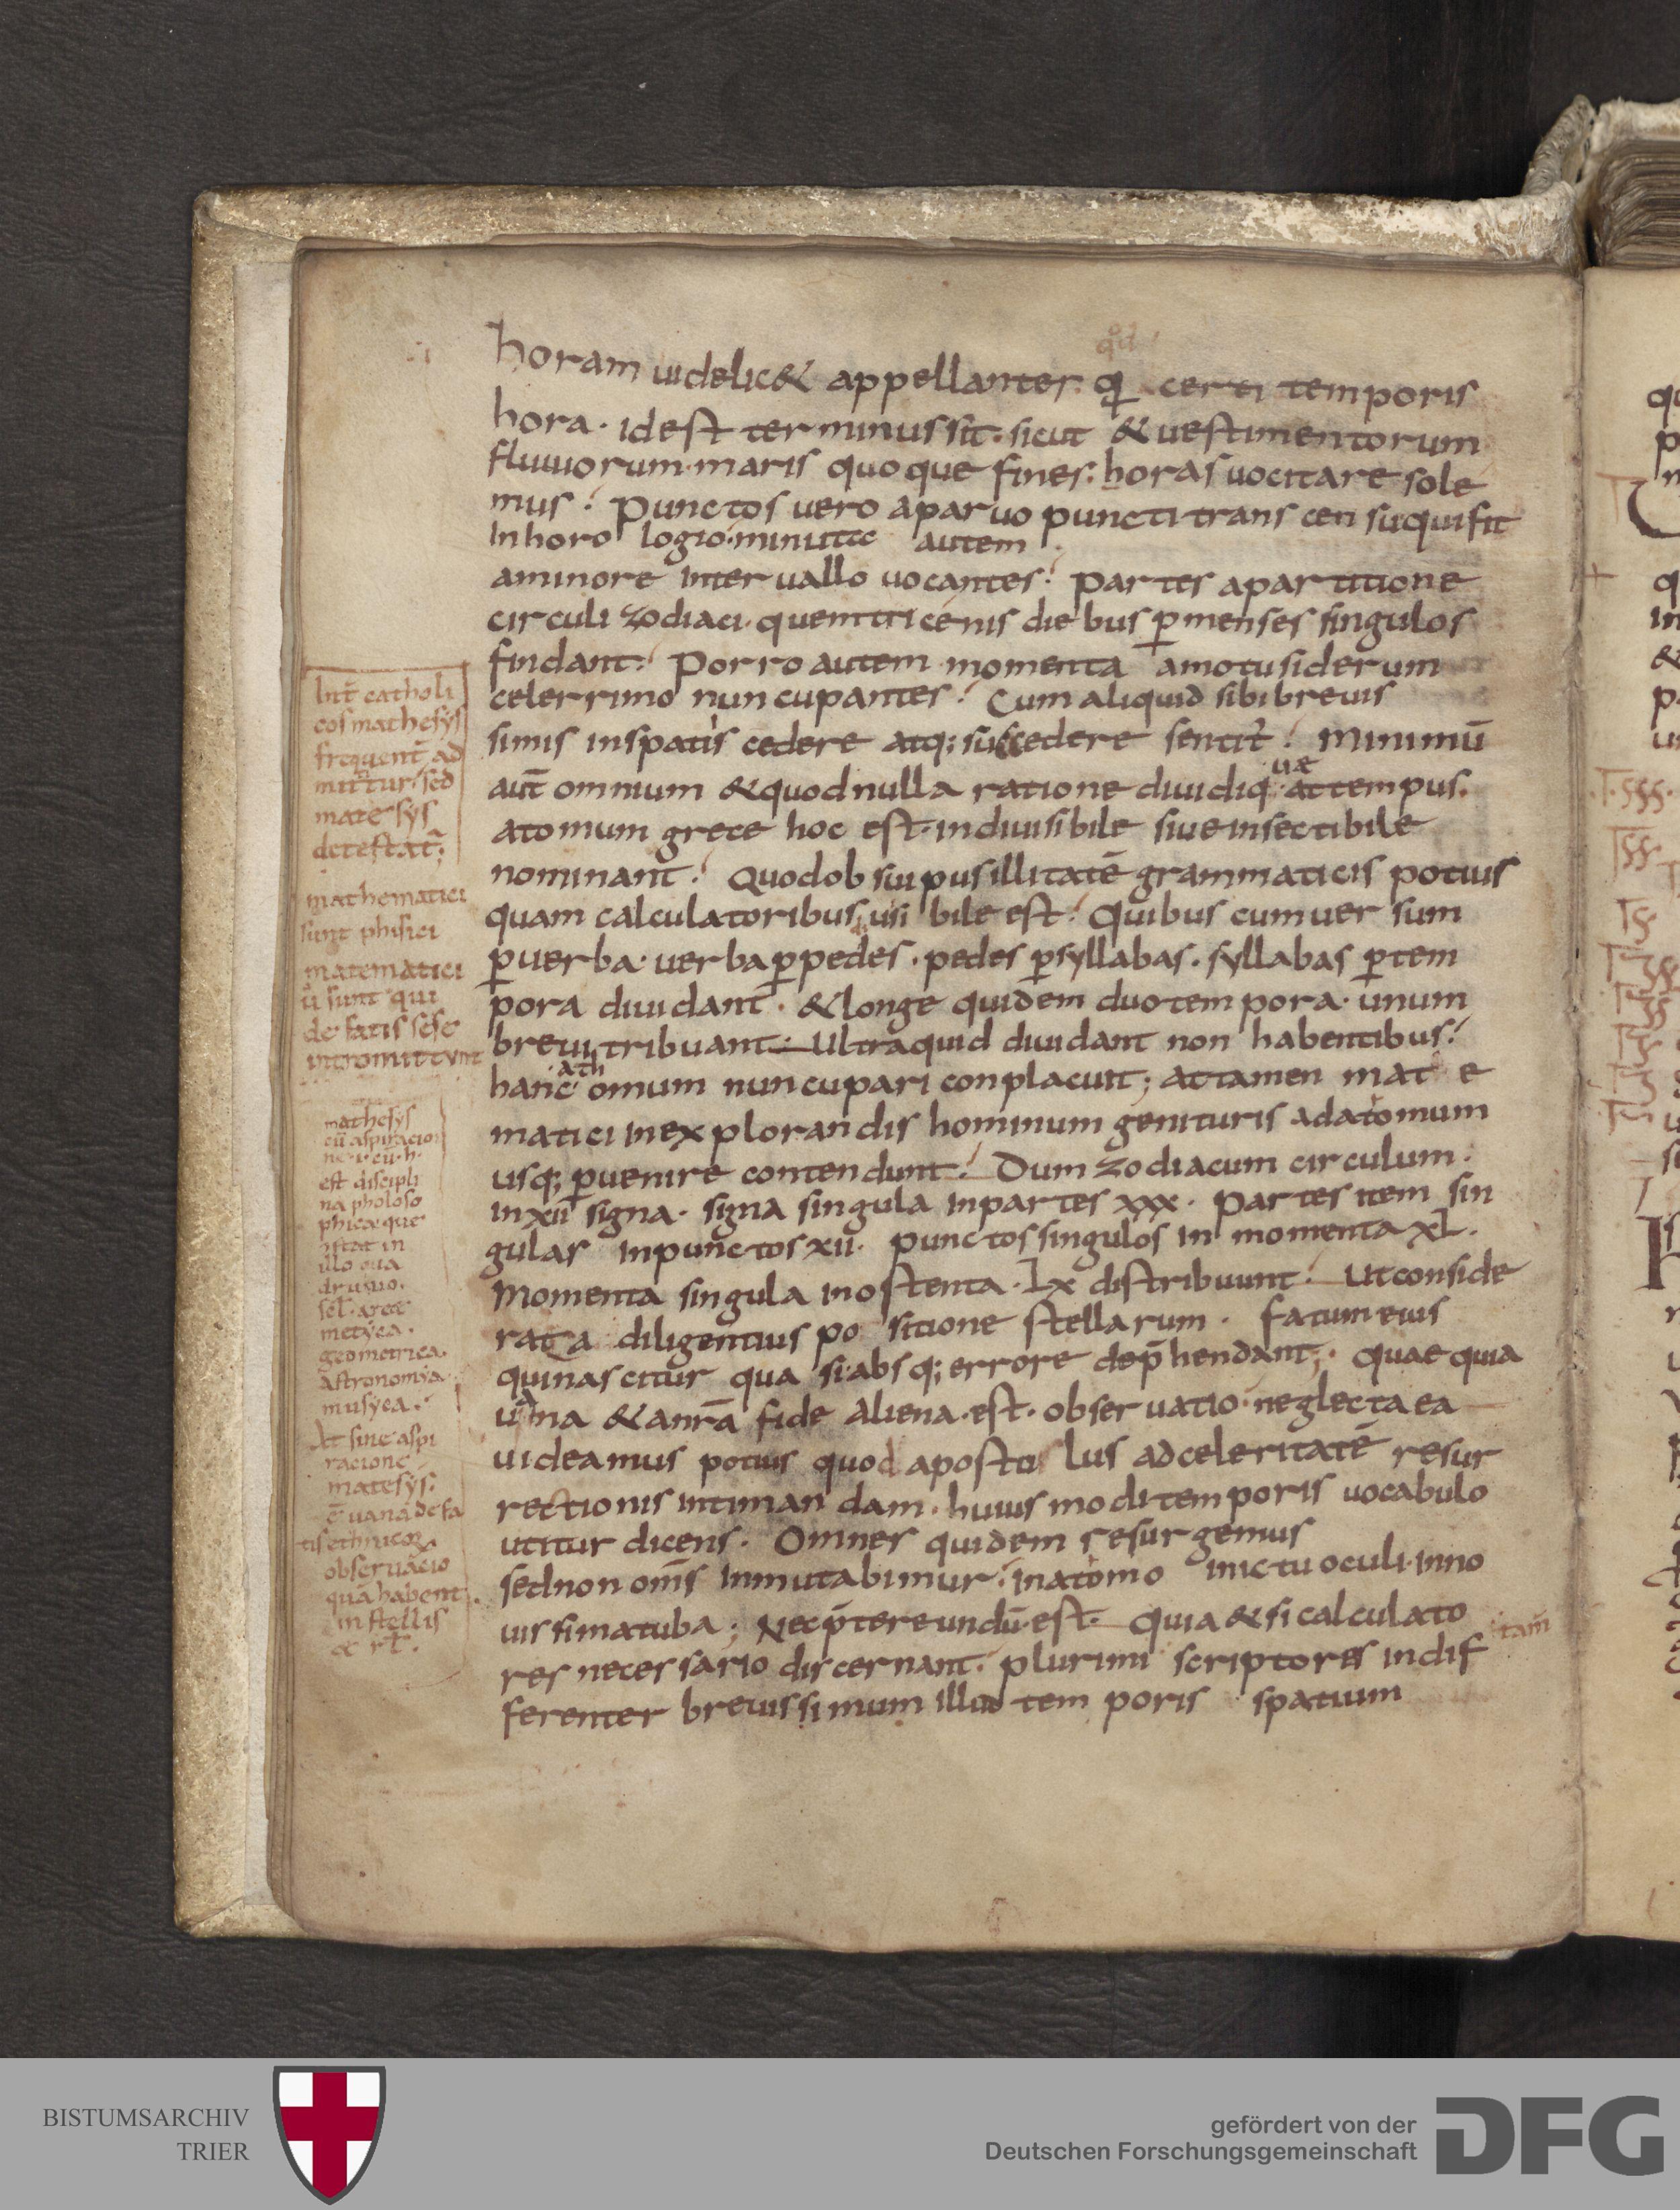 horam uidelic& appellanter q̨ certi temporis
qd
hora· id est terminus sit· sicut & uestimentorum
fluuiorum· maris quoque fines· horas uocitare sole
mus· Punctos uero aparuo puncti transcensu qui fit
In horologio· minutic autem
aminore interuallo uocantes· Partes apartitione
circuli zodiaci· quem tricenis diebus ꝑ menses singulos
findant· Porro autem momenta amotu siderum
celerrimo nuncupantes· Cum aliquid sibi breuis
simis inspatiis cedere atq; succedere sentit̃· Minimū
aut̄ omnium & quod nulla ratione diuidi queat tempus·
atomum grece hoc est· indiuisibile siue insectibile
nominant· Quod ob sui pusillitatē grammaticis potius
quam calculatoribus uisibile est· Quibus cum uersum
ꝑ uerba· uerba ꝑ pedes· pedes ꝑ syllabas· syllabas ꝑ tem
pora diuidant· & longe quidem duo tempora· unum
breui tribuant· Ultra quid diuidant non habentibus·
hanc athomum nuncupari conplacuit; attamen mate
matici in explorandis hominum genituris ad atomum
usq; ꝑuenire contendunt· Dum zodiacum circulum·
in xii signa· signa singula in partes xxx· partes item sin
gulas in punctos xii· punctos singulos in momenta xl·
Momenta singula in ostenta· lx distribuunt· Ut conside
rata diligentius positione stellarum· fatum eius
qui nascitur quasi absq; errore dep̄hendant;· quae quia
uana & a nr̄a fide aliena· est· obseruatio· neglecta ea
uideamus potius quod apostolus ad celeritatē resur
rectionis intimandam· huius modi temporis uocabulo
utitur dicens· Omnes quidem resurgemus
sed non om̄s inmutabimur· in atomo in ictu oculi· in no
uissima tuba; Nec p̄tereundū· est· Quia & si calculato
res necessario discernant· plurimi scriptores indif
tam̄
ferenter breuissimum illud temporis spatium
Int̄ catholi
cos mathesys
frequent̄ ad
mittitur· sed
matesys
detestat̄;
mathematici
sunt phisici
matematici
ů sunt qui
de fatis sese
intromittunt
mathesys
cū aspiracio
ne· i· cū· h·
est discipli
na pholoso
phica que
illo
sel̄·
metyca·
geometrica·
Astronomya
musyca·
At sine aspi
racione
matesys·
ē uana de fa
tis ethnicoꝝ
obseruacio
quā habent
in stellis
& rl̄·
BISTUMSARCHIV
TRIER
gefördert von der
Deutschen Forschungsgemeinschaft
DFG